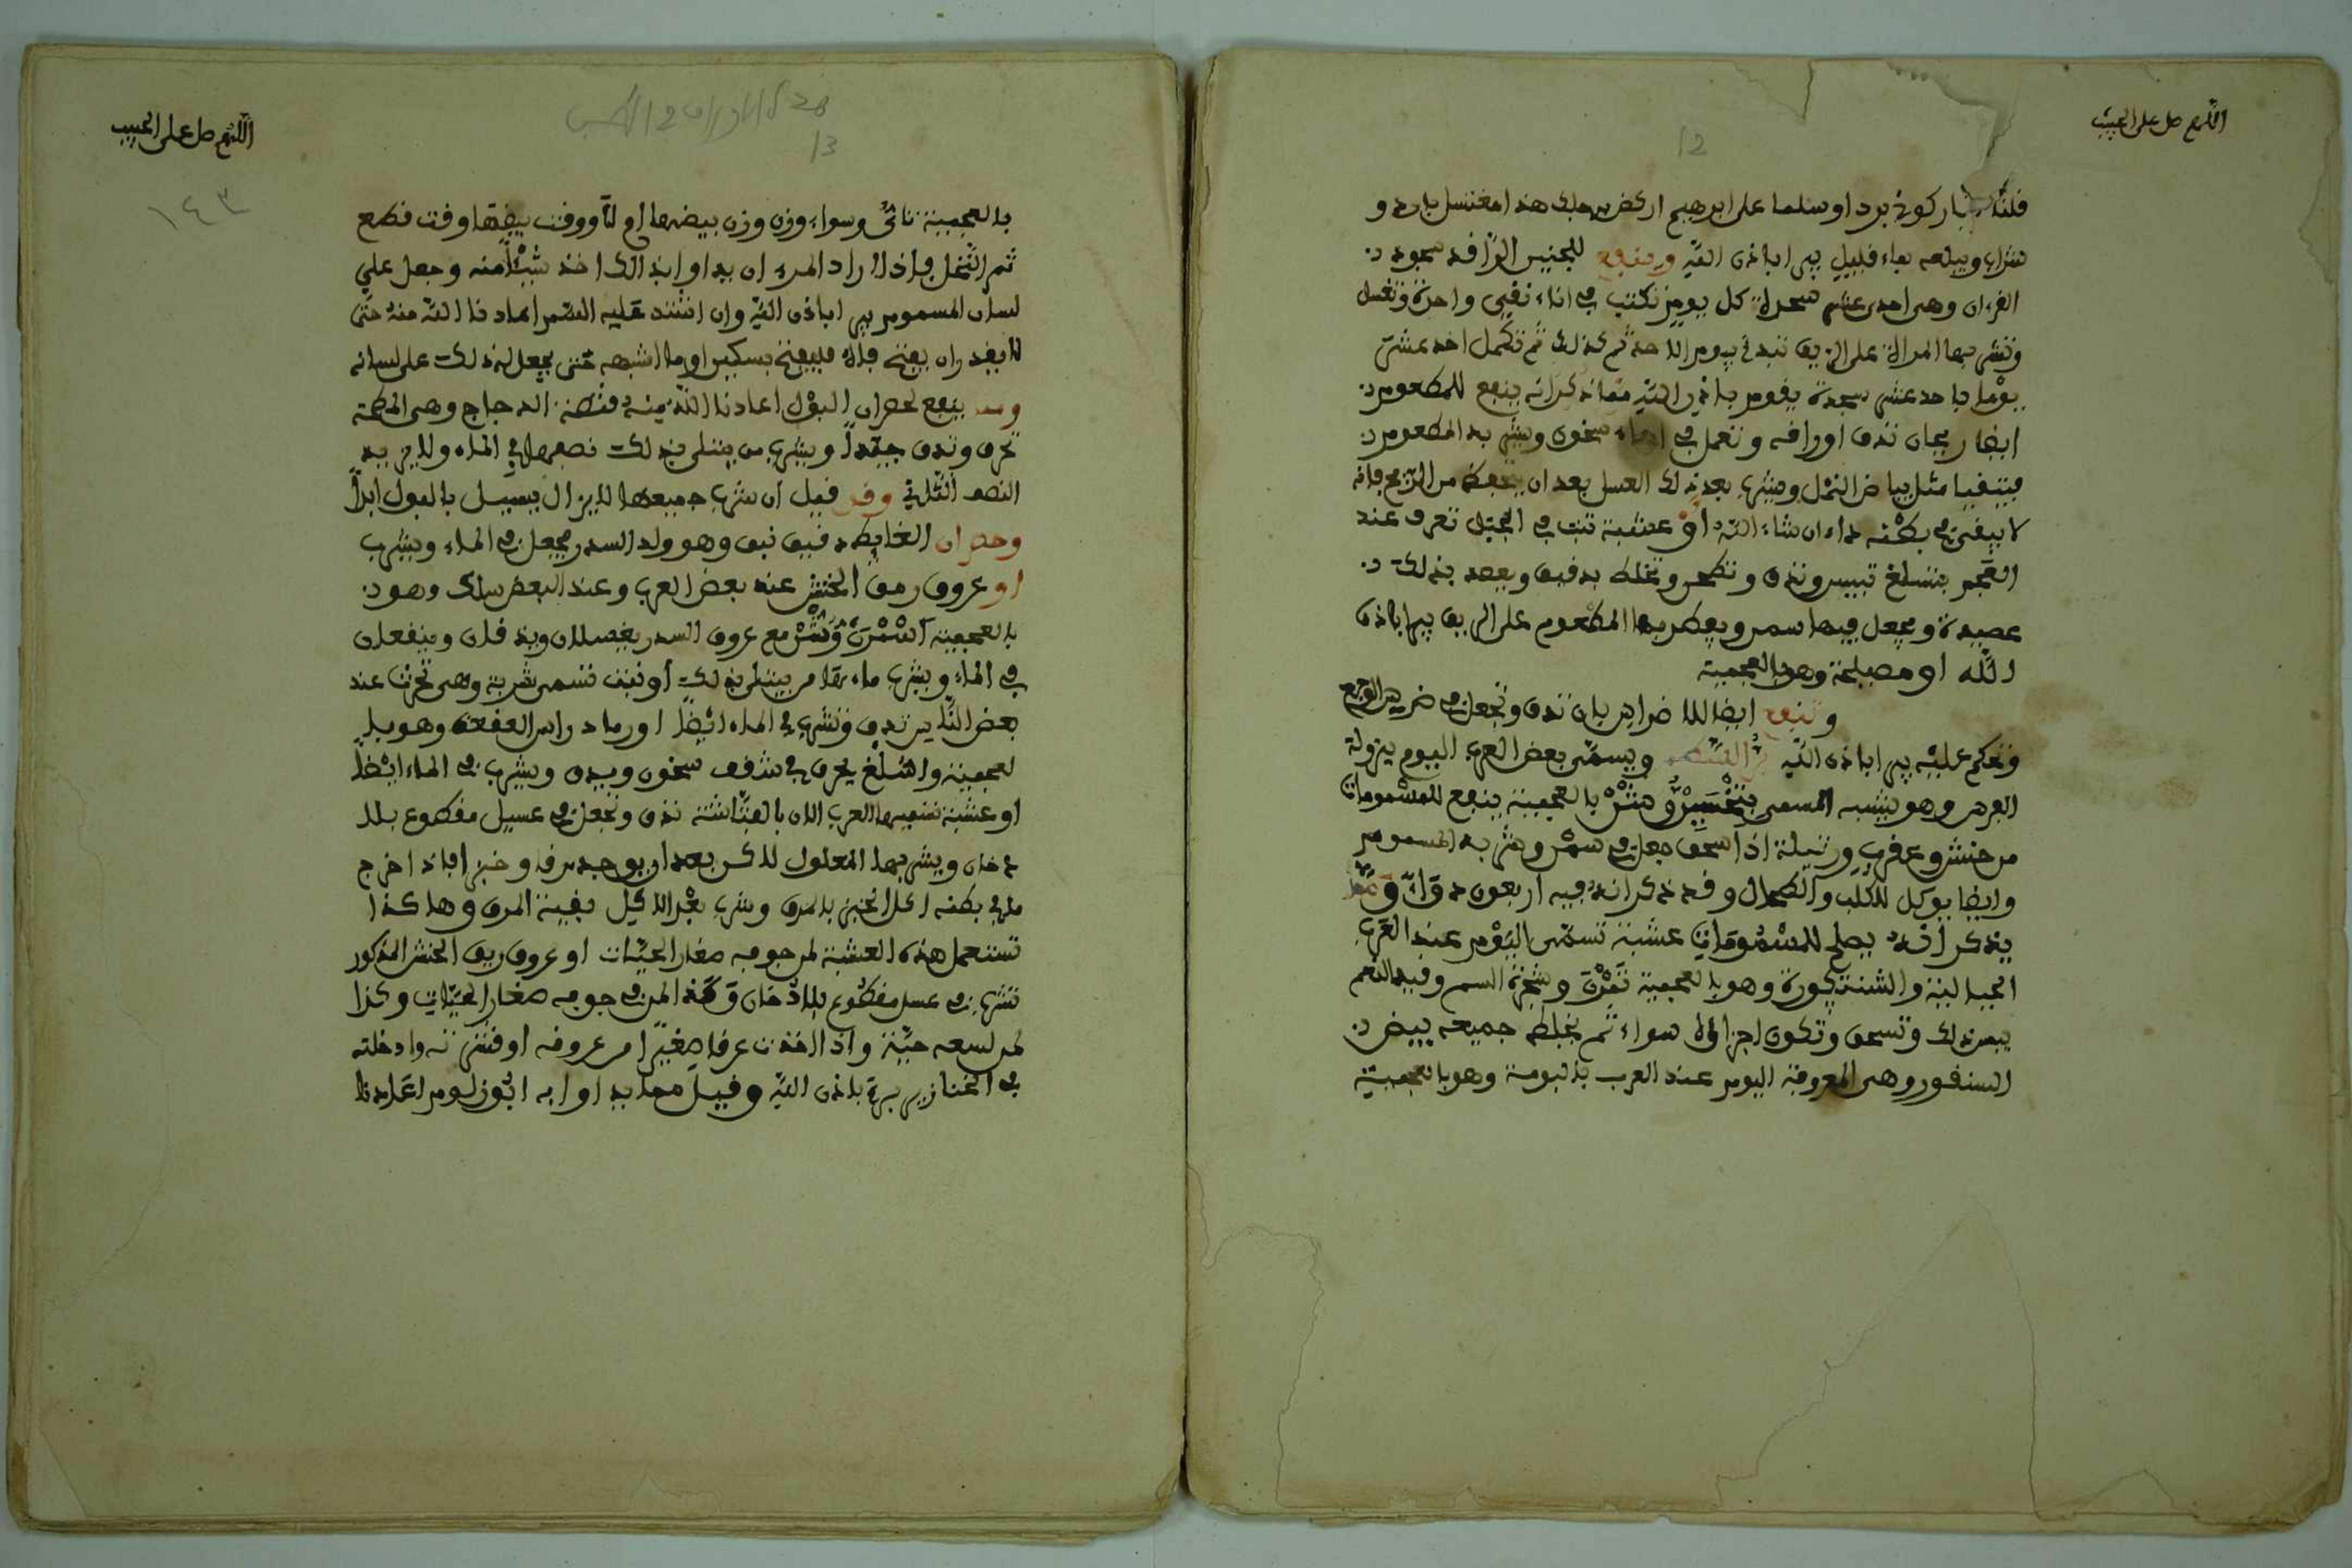 اللهم صل على الحبيب
12
قلنا يا نار كوني بردا وسلما على ابرهيم اركض برجلك هذا مغتسل بارد و
شراب ويبلعه بماء قليل يبرا باذن الله وينفع للجنين الراقد سجود
القرءان وهي احدى عشر سجدة كل يوم تكتب في اناء نقي واحدة وتغسل
وتشربها المراة على الريق تبدئ بيوم الاحد ثم كذلك ثم تكمل احد عشر
يوما باحد عشر سجدة يقوم باذن الله ومما ذكر انه ينفع للمطعوم
ايضا ريحان تدق اوراقه وتعمل في ماء سخون ويشربه المطعوم
فيتقيا مثل بياض النمل ويشرب بعد ذلك العسل بعد ان من الريح فانه
لا يبقى في بطنه داء ان شاء الله او عشبة تنبت في الجبل تعرف عند
العجم بتسلغ تيبس وتدق وتطحن وتخلط بدقيق ويعصد بذلك
عصيدة ويجعل فيها سمن ويفطر بها المطعوم على الريق يبرا باذن
الله او مصبلحة وهو بالعجمية
وتنفع ايضا للاضراس بان تدق وتجعل في ضرس الوجع
وتحكم عليه يبرا باذن الله ويسمى بعض العرب اليوم بزولة
الفرس وهو يشبه المسمى بالعجمية ينفع للمسمومات
من حنش وعقرب ورتيلة اذا سحق وجعل في سمن وشربه المسموم
وايضا يوكل للكلب والطحال وقد ذكر انه فيه اربعون دواء ومما
يذكر انه يصلح للمسمومات عشبة تسمى اليوم عند العرب
الجبالية والشنتكورة وهو بالعجمية وشجرة السم وفيها النعم
يبس ذلك وتسحق وتكون اجزاؤه سواء ثم يخلط جميعه ببيض
السنقور وهي المعروفة اليوم عند العرب بالبومة وهو بالعجمية
اللهم صل على الحبيب
13
١٤٣
بالعجمية تاتى وسواء وزن وزن بيضها او لا ووقت بيضها وقت قطع
ثمر النخل فاذا اراد المرء ان يداوي بذالك اخذ شيئا منه وجعل على
لسان المسموم يبرا باذن الله وان اشتد عليه السم اعاذنا الله منه حتى
لا يقدر ان يفتح فاه فليفتح بسكين او ما اشبهه حتى يجعل له ذلك على لسانه
ومما ينفع لحصران البول اعاذنا الله منه قنصة الدجاج وهي المطحمة
تحرق وتدق جيدا ويشرب من يبتلى بذلك نصفها في الماء ولا يزيد
النصف الثاني وقد قيل ان شرب جميعها لا يزال يسيل بالبول ابدا
وحصران الغايط دقيق نبق وهو ولد السدر يجعل في الماء ويشرب
او عروق رمق الحنش عند بعض العرب وعند البعض سلك وهو
بالعجمية مع عروق السدر يغسلان ويدقان وينقعان
في الماء ويشرب ماءهما من يبتلى بذلك او نبت تسمى شربة وهي تحرث عند
بعض الناس تدق وتشرب في الماء ايضا او رماد راس العقعة وهو بلـ
لعجمية واسلغ يحرق في شقف سخون ويدق ويشرب في الماء ايضا
او عشبة تسميها العرب الان بالفتاشة تدق وتجعل في عسل مقطوع بلا
دخان ويشربها المعلول لكن بعد ان يوجد مرقا وخبزا فاذا خرج
ما في بطنه اكل الخبز بالمرق وشرب بعد الاكل بقية المرق وهاكذا
تستعمل هذه العشبة لمن جوفه صغار الحيات او عروق ريق الحنش المذكور
تشرب في عسل مقطوع بلا دخان وهذا لمن في جوفه صغار الحيات وكذا
لمن لسعه حية واذا اخذت عرقا صغيرا من عروقه او قشرته وادخلته
في الخنازير يبرا باذن الله وقيل مما يداوا به ابوزلوم اعاذنا